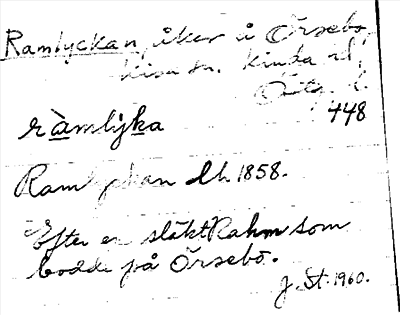 Ramlyckan, åker å Örsebo,
Kisa sn. Kinda hd,
Östg. l.
448
ràmlỳka
Ramlyckan LLh 1858.
Efter en släkt Rahm som
bodde på Örsebo.
J. St. 1960.